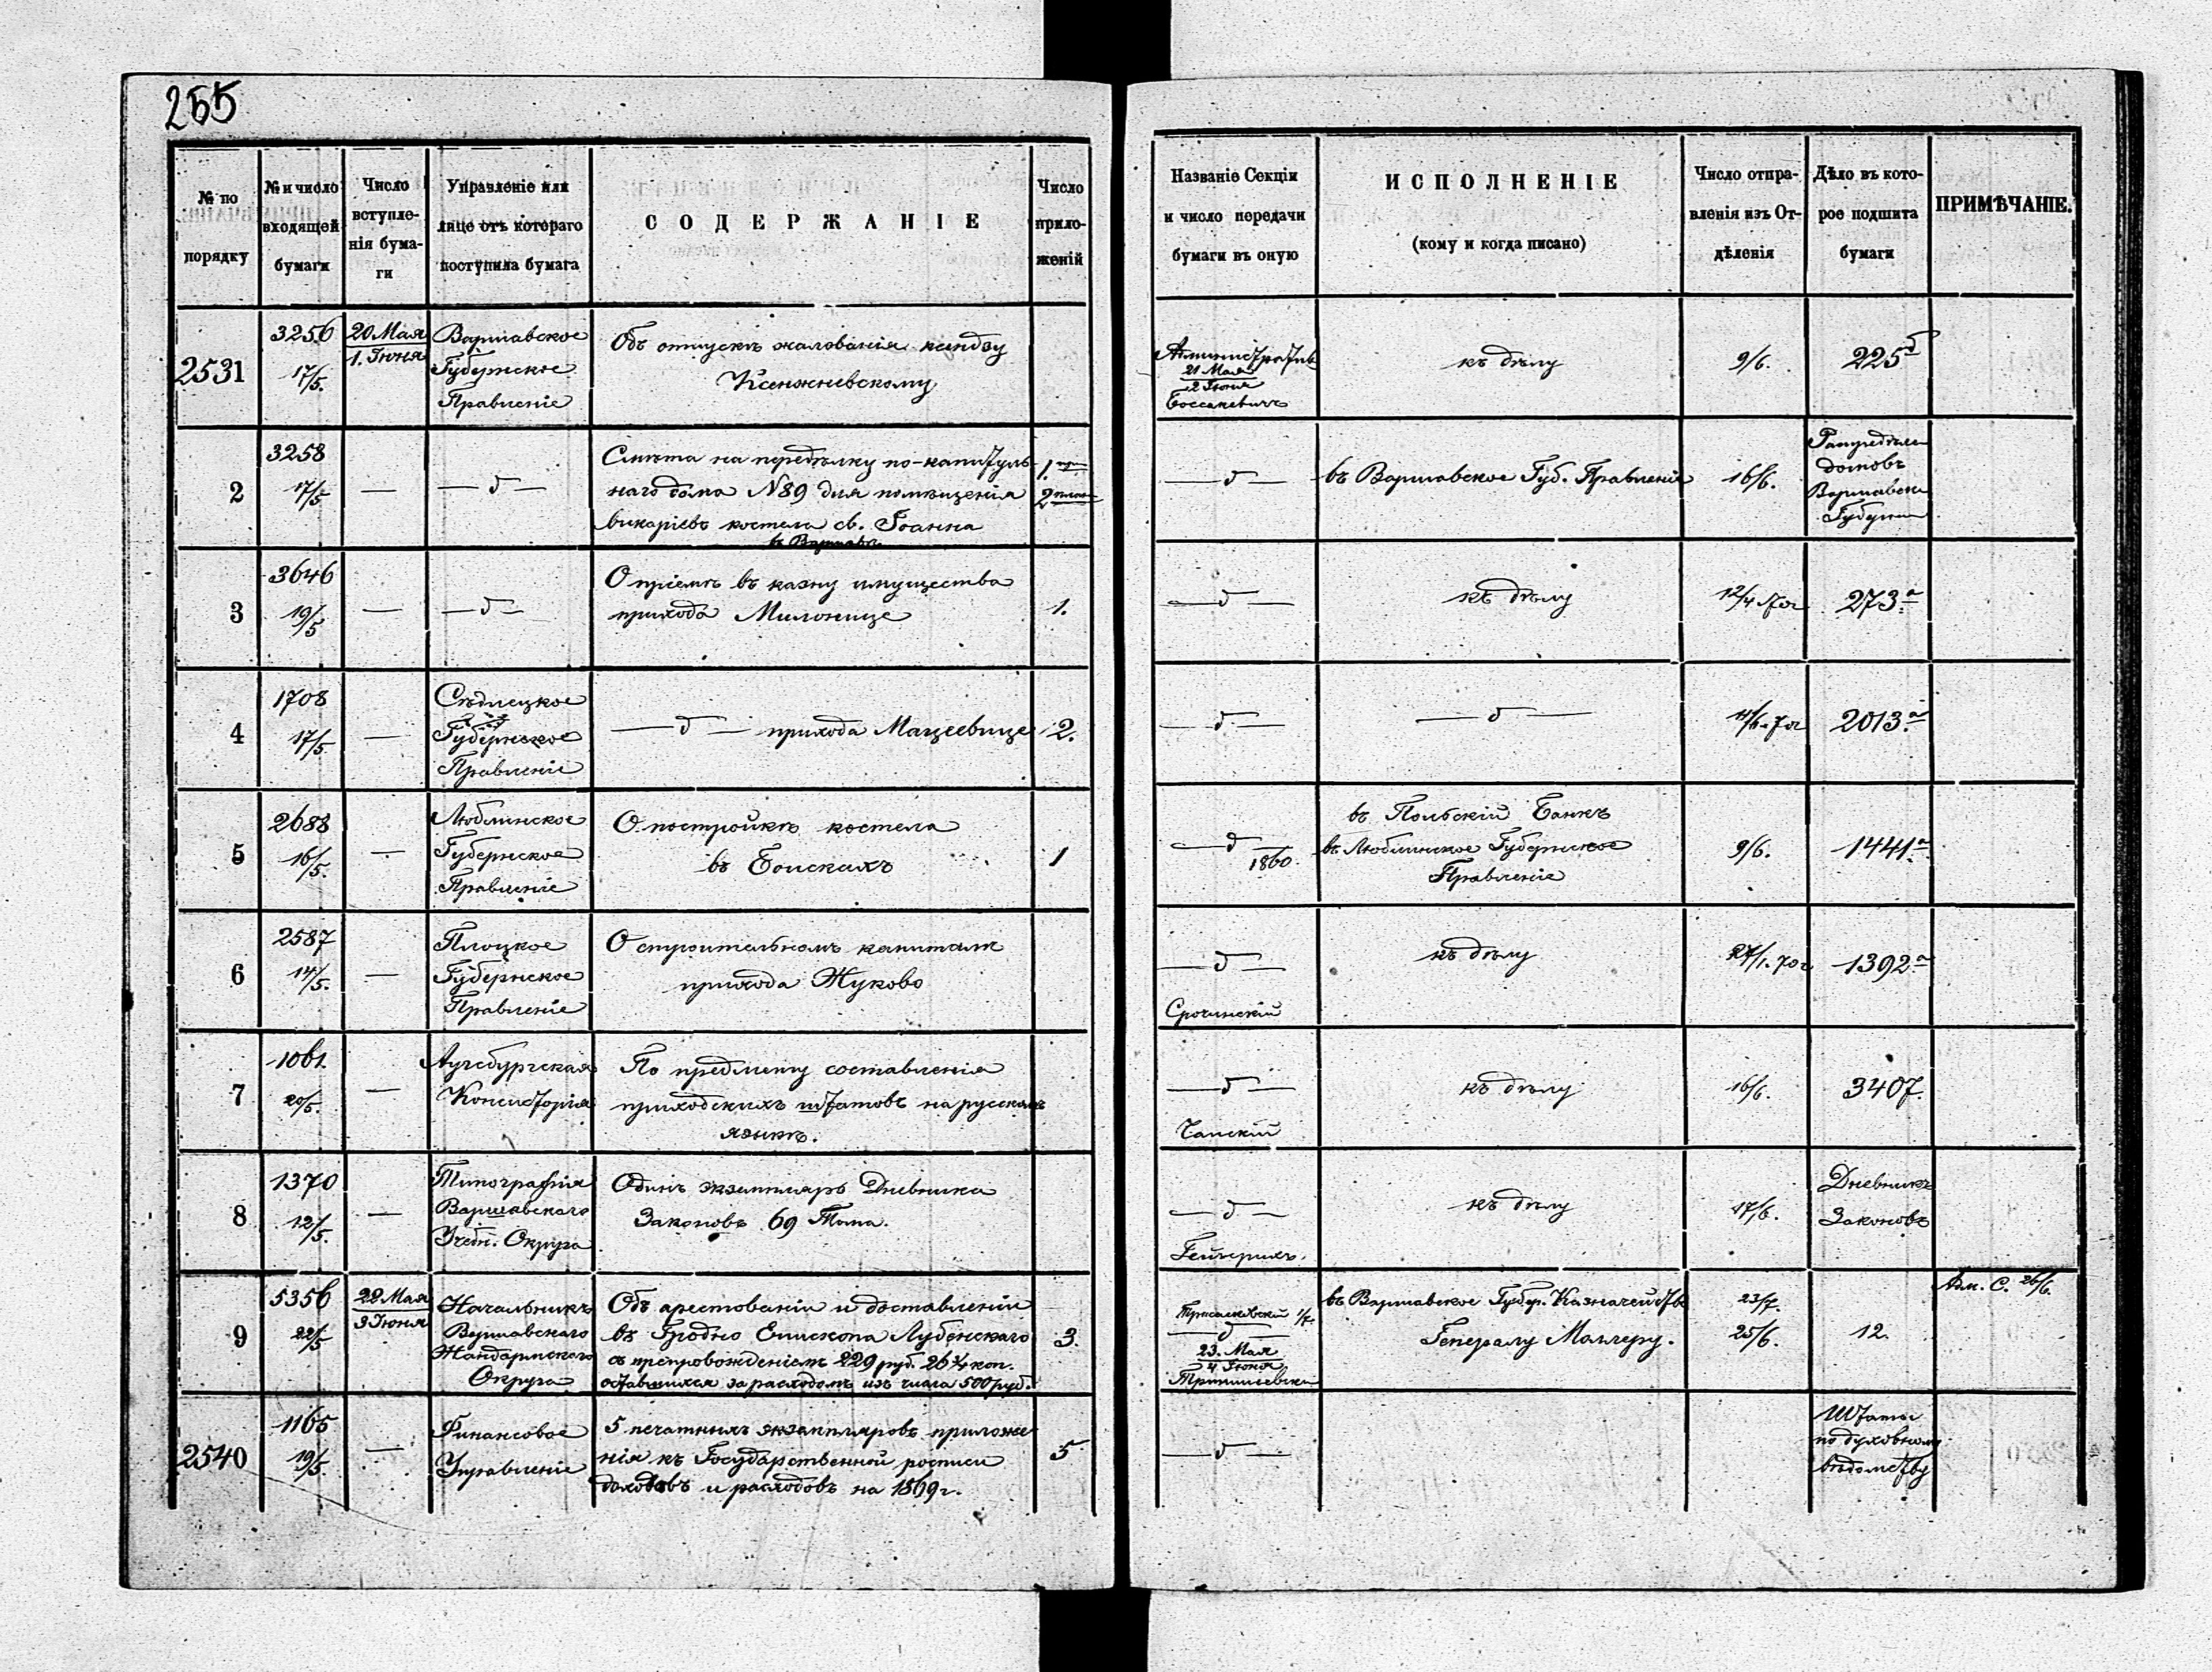 255
№ по порядку
№ и число входящей бумаги
Число вступле-нія бума-ги
Управленіе или лице отъ котораго поступила бумага
СОДЕРЖАНІЕ
Число прило-женій
Названіе Секціи и число передачи бумаги въ оную
ИСПОЛНЕНІЕ
(кому и когда писано)
Число отпра-вленія изъ От-дѣленія
Дѣло въ кото-рое подшита бумаги
ПРИМѢЧАНІЕ.
2531
3256
17/5.
20 Мая
1. Іюня
Варшавское
Губернское
Правленіе
Объ отпускѣ жалованія ксендзу
Ксенжневскому
21 Мая
2 Іюня
къ дѣлу
9/6.
225
2
3258
17/5
—
— д —
Смѣта на передѣлку по-капитуль-
наго дома N 89 для помѣщенія
викаріевъ костела св. Іоанна
въ Варшавѣ.
1.
2
— д —
въ Варшавское Губ. Правленіе
16/6.
домовъ
3
3646
19/5
—
— д —
О пріемѣ въ казну имущества
прихода Милонице
1.
— д —
къ дѣлу
12/4 70г
273 а
4
1708
17/5
—
Сѣдлецкое
Губернское
Правленіе
— д — прихода Мацеевице
2.
— д —
— д —
2013. а
5
2688
16/5.
—
Люблинское
Губернское
Правленіе
О постройкѣ костела
въ Боискахъ
1
— д —
1860.
въ Польскій Банкъ
въ Люблинское Губернское
Правленіе
9/6.
1441 а
6
2587
14/5.
—
Плоцкое
Губернское
Правленіе
О строительномъ капиталѣ
прихода Жуково
— д —
Срочинскій
къ дѣлу
27/1. 70г
1392 а
7
1061.
20/5.
—
Аугсбургская
Консисторія
По предмету составленія
приходскихъ штатовъ на русскомъ
языкѣ.
— д —
къ дѣлу
16/6.
3407.
8
1370
12/5.
—
Типографія
Варшавскаго
Учебн. Округа
Одинъ экземпляръ Дневника
Законовъ 69 Тома.
— д —
къ дѣлу
17/6.
Дневникъ
Законовъ
9
5356
22/5
22 Мая
3 Іюня
Начальникъ
Варшавскаго
Жандармскаго
Округа
Объ арестованіи и доставленіи
въ Гродно Епископа Лубенскаго
съ препровожденіемъ 229 руб. 26 1/4 коп.
оставшихся за расходомъ изъ числа 500 руб.
3.
— д —
23. Мая
4 Іюня
въ Варшавское Губер. Казначейство
Генералу Маллеру.
23/7.
25/6.
12.
26/6.
2540
1165
19/5.
—
Финансовое
Управленіе
5 печатныхъ экземпляровъ приложе-
нія къ Государственной росписи
доходовъ и расходовъ на 1869 г.
5
— д —
Штаты
по духовному
вѣдомству